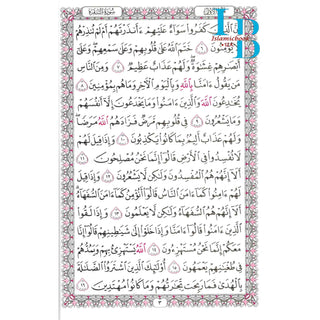 سُورَةُ البَقَرَةِ
IB
Islamicbook
إِنَّ الَّذِينَ كَفَرُوا سَوَاءٌ عَلَيْهِمْ ءَأَنذَرْتَهُمْ أَمْ لَمْ تُنذِرْهُمْ
لَا يُؤْمِنُونَ ٦ خَتَمَ اللَّهُ عَلَىٰ قُلُوبِهِمْ وَعَلَىٰ سَمْعِهِمْ وَعَلَىٰ
أَبْصَٰرِهِمْ غِشَٰوَةٌ وَلَهُمْ عَذَابٌ عَظِيمٌ ٧ وَمِنَ النَّاسِ
مَن يَقُولُ ءَامَنَّا بِاللَّهِ وَبِالْيَوْمِ الْآخِرِ وَمَا هُم بِمُؤْمِنِينَ ٨
يُخَٰدِعُونَ اللَّهَ وَالَّذِينَ ءَامَنُوا وَمَا يَخْدَعُونَ إِلَّا أَنفُسَهُمْ
وَمَا يَشْعُرُونَ ٩ فِي قُلُوبِهِم مَّرَضٌ فَزَادَهُمُ اللَّهُ مَرَضًا
وَلَهُمْ عَذَابٌ أَلِيمٌ بِمَا كَانُوا يَكْذِبُونَ ١٠ وَإِذَا قِيلَ لَهُمْ
لَا تُفْسِدُوا فِي الْأَرْضِ قَالُوا إِنَّمَا نَحْنُ مُصْلِحُونَ ١١
أَلَا إِنَّهُمْ هُمُ الْمُفْسِدُونَ وَلَٰكِن لَّا يَشْعُرُونَ ١٢ وَإِذَا قِيلَ
لَهُمْ ءَامِنُوا كَمَا ءَامَنَ النَّاسُ قَالُوا أَنُؤْمِنُ كَمَا ءَامَنَ السُّفَهَاءُ
أَلَا إِنَّهُمْ هُمُ السُّفَهَاءُ وَلَٰكِن لَّا يَعْلَمُونَ ١٣ وَإِذَا لَقُوا
الَّذِينَ ءَامَنُوا قَالُوا ءَامَنَّا وَإِذَا خَلَوْا إِلَىٰ شَيَٰطِينِهِمْ قَالُوا إِنَّا
مَعَكُمْ إِنَّمَا نَحْنُ مُسْتَهْزِءُونَ ١٤ اللَّهُ يَسْتَهْزِئُ بِهِمْ وَيَمُدُّهُمْ
فِي طُغْيَٰنِهِمْ يَعْمَهُونَ ١٥ أُولَٰئِكَ الَّذِينَ اشْتَرَوُا الضَّلَٰلَةَ
بِالْهُدَىٰ فَمَا رَبِحَت تِّجَٰرَتُهُمْ وَمَا كَانُوا مُهْتَدِينَ ١٦
٣